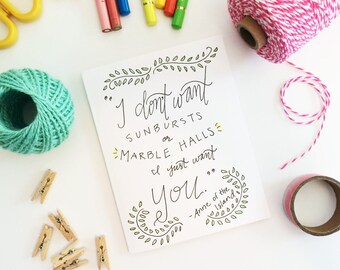 "I don't want
SUNBURSTS
or
MARBLE HALLS
I just want
You."
- Anne of the
Island